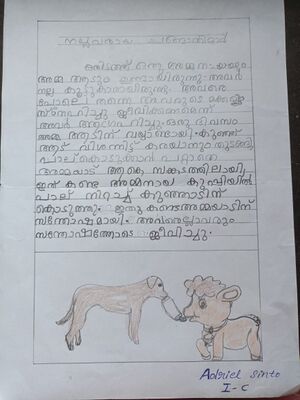 നല്ലവരായ ചങ്ങാതിമാർ
ഒരിടത്ത് ഒരു അമ്മ നായയും
അമ്മ ആടും ഉണ്ടായിരുന്നു അവർ
നല്ല കൂട്ടുകാരായിരുന്നു. അവരെ
പോലെ തന്നെ അവരുടെ മക്കളും
സ്നേഹിച്ചു ജീവിക്കണമെന്ന്
അവർ ആഗ്രഹിച്ചു. ഒരു ദിവസം
അമ്മ ആടിന് വയ്യാതായി. കുഞ്ഞ്
ആട് വിശന്നിട്ട് കരയാനും തുടങ്ങി.
പാല് കൊടുക്കാൻ പറ്റാതെ
അമ്മയാട് ആകെ സങ്കടത്തിലായി,
ഇത് കണ്ട അമ്മനായ കുപ്പിയിൽ
പാല് നിറച്ച് കുഞ്ഞാടിന്
കൊടുത്തു. ഇതു കണ്ട അമ്മയാടിന്
സന്തോഷമായി. അവരെല്ലാവരും
സന്തോഷത്തോടെ ജീവിച്ചു.
Adriel Sinto
I-C